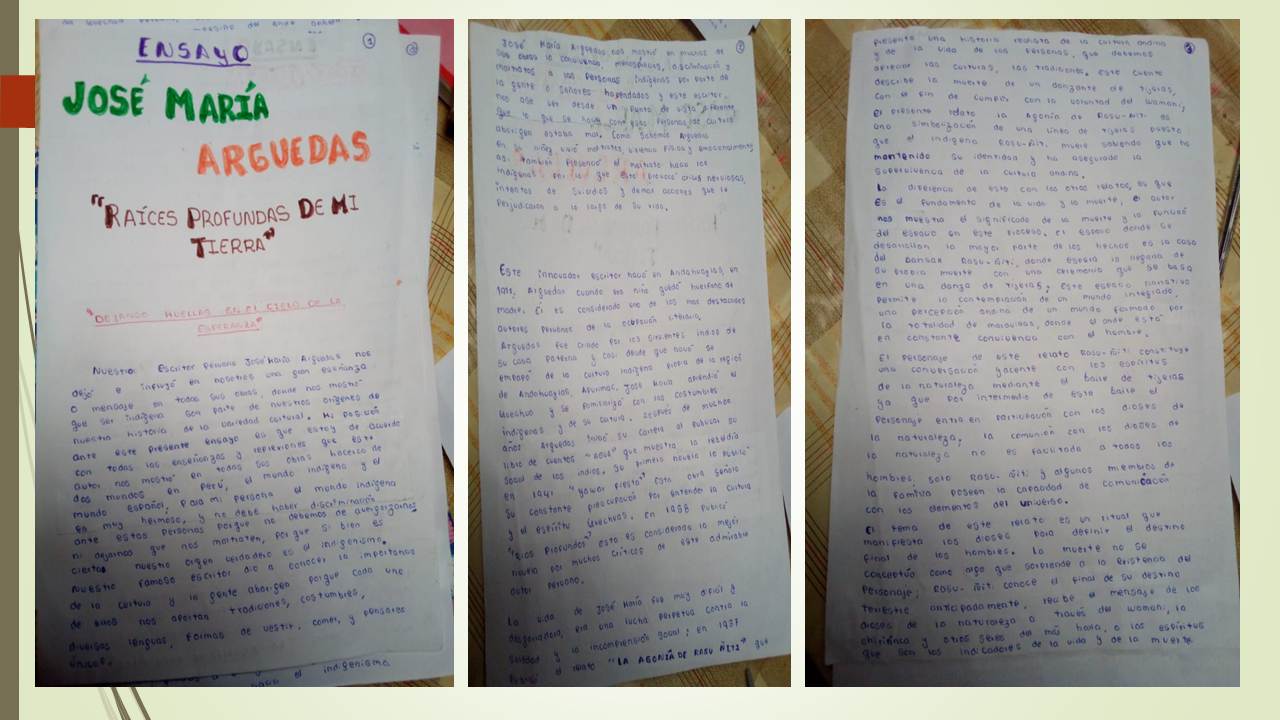 ENSAYO
①
JOSÉ MARÍA
ARGUEDAS
"RAÍCES PROFUNDAS DE MI
TIERRA"
"DEJANDO HUELLAS EN EL CIELO DE LA
ESPERANZA"
Nuestro Escritor peruano José María Arguedas nos
dejó e influyó en nosotros una gran enseñanza
o mensaje en todas sus obras, donde nos mostró
que ser indígena son parte de nuestros orígenes de
nuestra historia de la variedad cultural. Mi posición
ante este presente ensayo es que estoy de acuerdo
con todas las enseñanzas y reflexiones que este
autor nos mostró en todas sus obras hacerca de
dos mundos en Perú, el mundo indígena y el
mundo español, Para mi persona el mundo indígena
es muy hermoso, y no debe haber discriminación
ante estas personas porque no debemos de avergonzarnos
ni dejarnos que nos maltraten, porque si bien es
cierto nuestro origen verdadero es el indigenismo.
Nuestro famoso escritor dio a conocer la importancia
de la cultura y la gente aborigen porque cada uno
de ellos nos aportan tradiciones, costumbres,
diversas lenguas, formas de vestir, comer, y pensares
únicos.
el indigenismo
José María Arguedas nos mostró en muchas de
sus obras la convivencia, menosprecios, discriminación y
maltratos a las personas indígenas por parte de
la gente o señores hacendados y este escritor
nos ase ver desde un punto de vista diferente
que lo que se hacía con esas personas de cultura
aborigen estaba mal. Como sabemos Arguedas
en su niñez vivió maltratos, violencia física y emocionalmente
así también presenció el maltrato hacia los
indígenas por lo que esto provocó crisis nerviosas,
intentos de suicidios y demás acciones que lo
perjudicaron a lo largo de su vida.
Este innovador escritor nació en Andahuaylas, en
1911, Arguedas cuando era niño quedó huérfano de
madre. Él es considerado uno de los más destacados
autores peruanos de la literaria.
Arguedas fue criado por los sirvientes indios de
su casa paterna y casi desde que nació se
empapó de la cultura indígena propia de la región
de Andahuaylas, Apurímac, José María aprendió el
Quechua y se familiarizó con las costumbres
indígenas y de su cultura. Después de muchos
años Arguedas inició su carrera al publicar su
libro de cuentos "agua" que muestra la rebeldía
social de los indios. Su primera novela la publicó
en 1941 "Yawar Fiesta" Esta obra señaló
su constante preocupación por entender la cultura
y el espíritu Quechuas. En 1958 publicó
"Ríos Profundos" esta es considerada la mejor
novela por muchos críticos de este admirable
autor peruano.
La vida de José María fue muy difícil y
desgarradora, era una lucha perpetua contra la
soledad y la incomprensión social; en 1957
publicó el relato "LA AGONÍA DE RASU ÑITI" que
③
presenta una historia realista de la cultura andina
y de la vida de las personas, que debemos
apreciar las culturas, las tradiciones. Este cuento
describe la muerte de un danzante de tijeras,
con el fin de cumplir con la voluntad del Wamani;
El presente relato la Agonía de Rasu-Ñiti es
una simbolización de una línea de tijeras puesto
que el indígena Rasu-Ñiti, muere sabiendo que ha
mantenido su identidad y ha asegurado la
supervivencia de la cultura andina.
La diferencia de este con los otros relatos, es que
es el fundamento de la vida y la muerte; el autor
nos muestra el significado de la muerte y la función
del espacio en este proceso. El espacio donde se
desarrollan la mayor parte de los hechos es la casa
del Dansak Rasu-Ñiti, donde espera la llegada de
su propia muerte con una ceremonia que se basa
en una danza de tijeras. Este espacio narrativo
permite la contemplación de un mundo integrado,
una percepción andina de un mundo formado por
la totalidad de donde el ande está
en constante convivencia con el hombre.
El personaje de este relato Rasu-Ñiti constituye
una conversación yacente con los espíritus
de la naturaleza mediante el baile de tijeras
ya que por intermedio de este baile el
personaje entra en participación con los dioses de
la naturaleza; la comunión con los dioses de
la naturaleza no es facilitada a todos los
hombres, solo Rasu-Ñiti y algunos miembros de
la familia poseen la capacidad de comunicación
con los elementos del universo.
El tema de este relato es un ritual que
manifiesta los dioses para definir el destino
final de los hombres. La muerte no se
conceptúa como algo que sorprende a la existencia del
personaje; Rasu-Ñiti conoce el final de su destino
terrestre anticipadamente, recibe el mensaje de los
dioses de la naturaleza a través del Wamani, la
chiririnka y otros seres del más hallá, o los espíritus
que son los indicadores de la vida y de la muerte